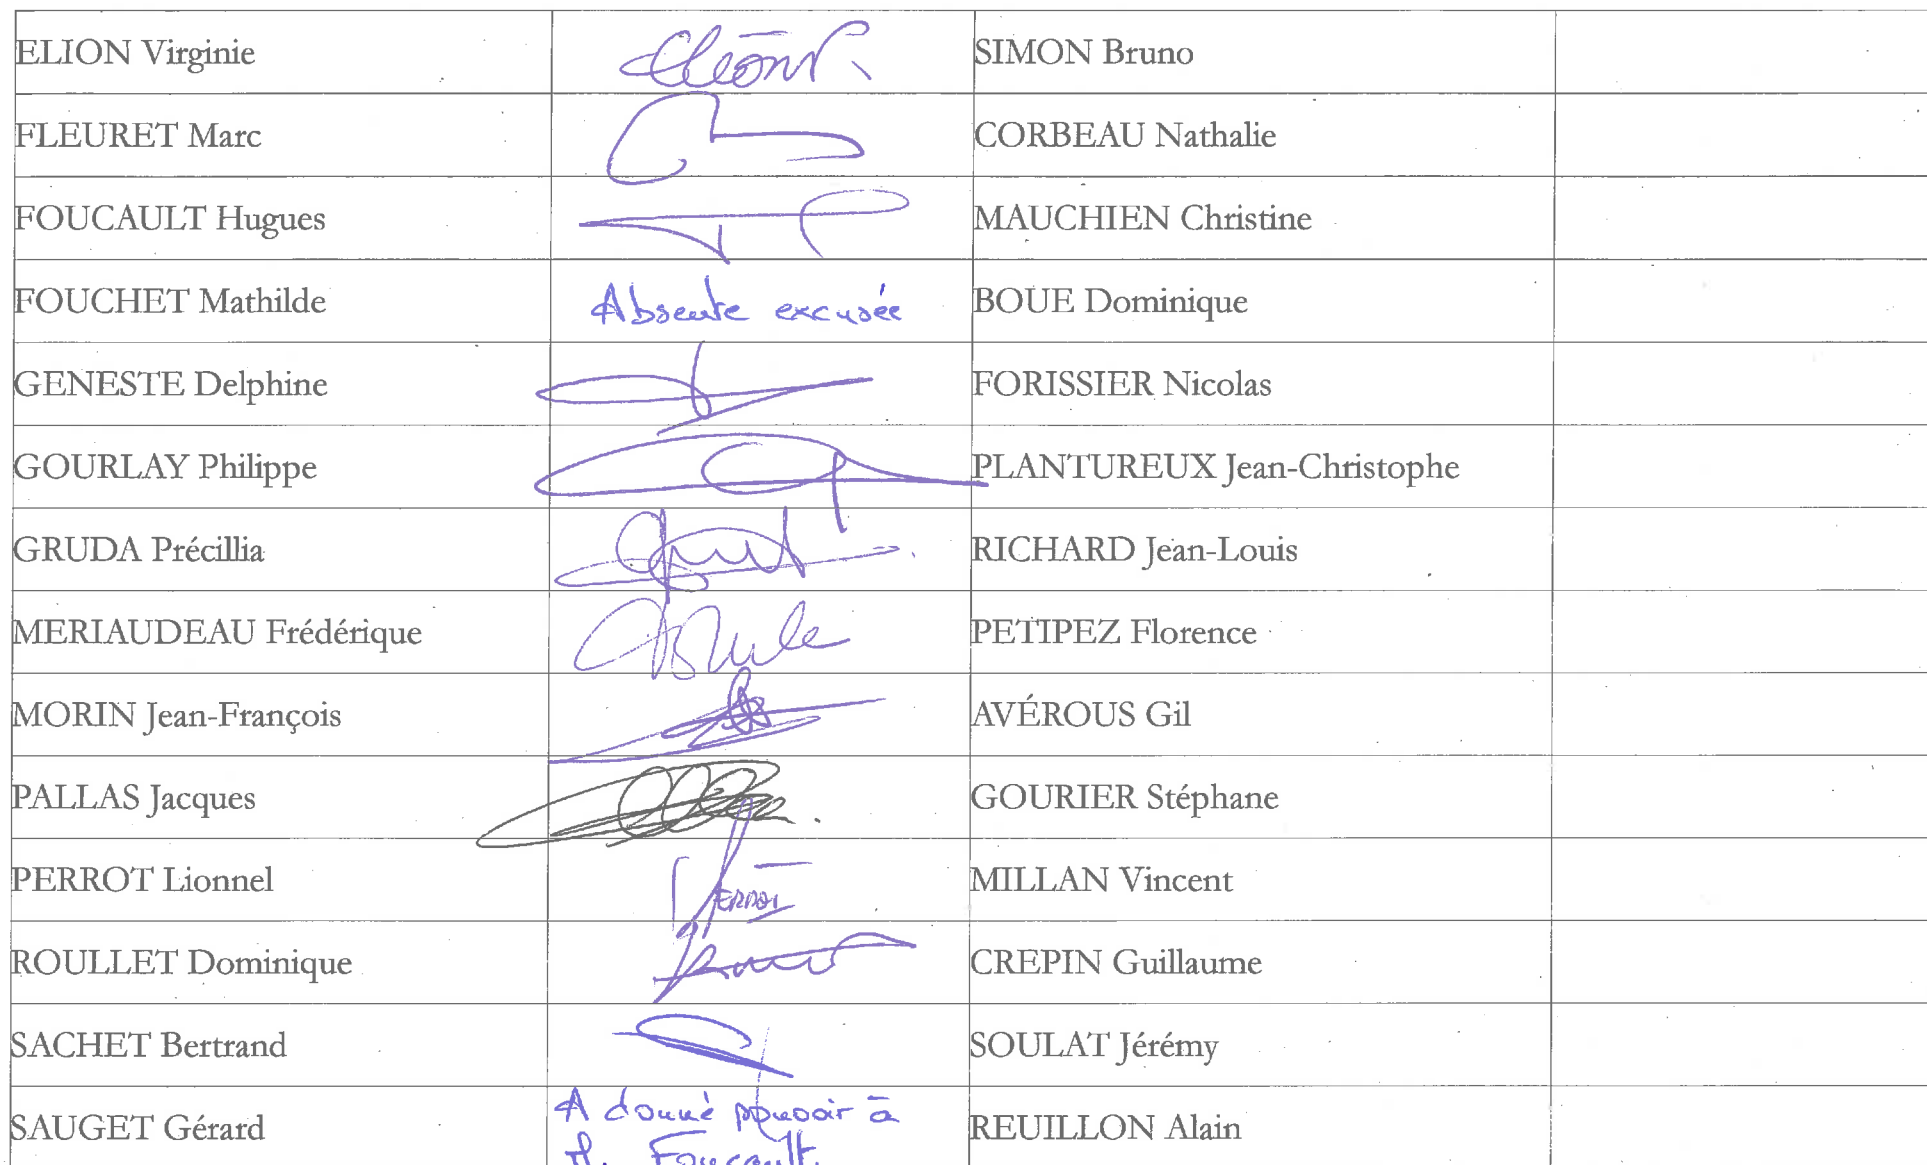 ELION Virginie SIMON Bruno
FLEURET Marc CORBEAU Nathalie
FOUCAULT Hugues MAUCHIEN Christine
FOUCHET Mathilde Absente excusée BOUE Dominique
GENESTE Delphine FORISSIER Nicolas
GOURLAY Philippe PLANTUREUX Jean-Christophe
GRUDA Précillia RICHARD Jean-Louis
MERIAUDEAU Frédérique PETIPEZ Florence
MORIN Jean-François AVÉROUS Gil
PALLAS Jacques GOURIER Stéphane
PERROT Lionnel PERROT MILLAN Vincent
ROULLET Dominique CREPIN Guillaume
SACHET Bertrand SOULAT Jérémy
SAUGET Gérard A donné pouvoir à REUILLON Alain
M. Foucault.